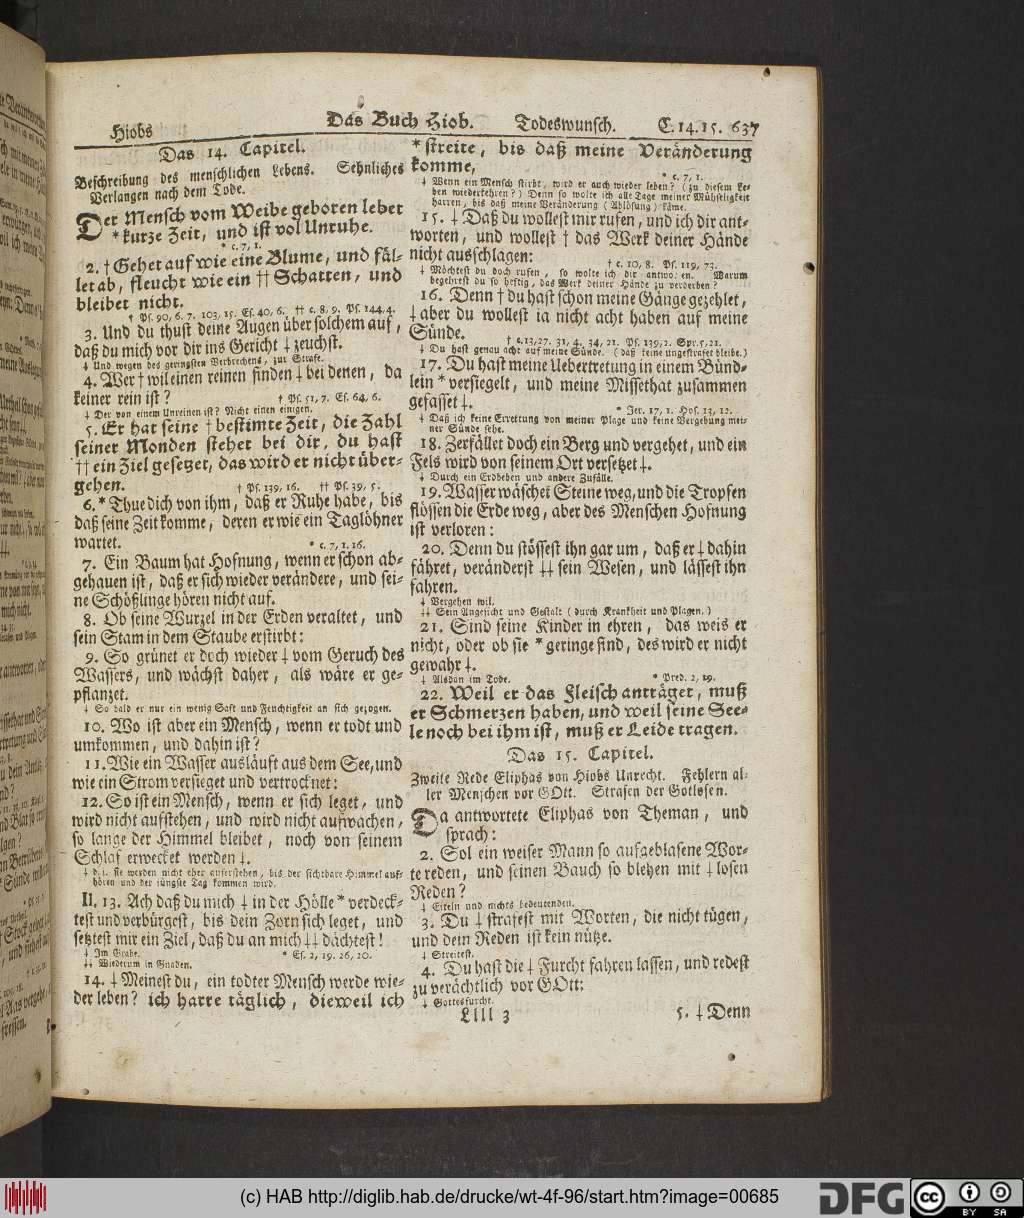 Hiobs Das Buch Hiob. Todeswunsch. C. 14. 15. 637
Das 14. Capitel.
Beschreibung des menschlichen Lebens. Sehnliches
Verlangen nach dem Tode.
Der Mensch vom Weibe geboren lebet
* kurze Zeit, und ist vol Unruhe.
* c. 7, 1.
2. † Gehet auf wie eine Blume, und fäl-
let ab, fleucht wie ein †† Schatten, und
bleibet nicht.
† Ps. 90, 6. 7. 103, 15. Es. 40, 6. †† c. 8, 9. Ps. 144, 4.
3. Und du thust deine Augen über solchem auf,
daß du mich vor dir ins Gericht ⸸ zeuchst.
⸸ Und wegen des geringsten Verbrechens, zur Strafe.
4. Wer † wil einen reinen finden ⸸ bei denen, da
keiner rein ist?
† Ps. 51, 7. Es. 64, 6.
⸸ Der von einem Unreinen ist? Nicht einen einigen.
5. Er hat seine † bestimte Zeit, die Zahl
seiner Monden stehet bei dir, du hast
†† ein Ziel gesetzet, das wird er nicht über-
gehen.
† Ps. 139, 16. †† Ps. 39, 5.
6. * Thue dich von ihm, daß er Ruhe habe, bis
daß seine Zeit komme, deren er wie ein Taglöhner
wartet.
* c. 7, 1. 16.
7. Ein Baum hat Hofnung, wenn er schon ab-
gehauen ist, daß er sich wieder verändere, und sei-
ne Schößlinge hören nicht auf.
8. Ob seine Wurzel in der Erden veraltet, und
sein Stam in dem Staube erstirbt:
9. So grünet er doch wieder ⸸ vom Geruch des
Wassers, und wächst daher, als wäre er ge-
pflanzet.
⸸ So bald er nur ein wenig Saft und Feuchtigkeit an sich gezogen.
10. Wo ist aber ein Mensch, wenn er todt und
umkommen, und dahin ist?
11. Wie ein Wasser ausläuft aus dem See, und
wie ein Strom versieget und vertrocknet:
12. So ist ein Mensch, wenn er sich leget, und
wird nicht aufstehen, und wird nicht aufwachen,
so lange der Himmel bleibet, noch von seinem
Schlaf erwecket werden ⸸.
⸸ d. i. sie werden nicht eher auferstehen, bis der sichtbare Himmel auf-
hören und der jüngste Tag kommen wird.
II. 13. Ach daß du mich ⸸ in der Hölle * verdeck-
test und verbürgest, bis dein Zorn sich leget, und
setztest mir ein Ziel, daß du an mich ⸸⸸ dächtest!
⸸ Im Grabe. * Es. 2, 19. 26, 20.
⸸⸸ Wiederum in Gnaden.
14. ⸸ Meinest du, ein todter Mensch werde wie-
der leben? ich harre täglich, dieweil ich
* streite, bis daß meine Veränderung
komme,
* c. 7, 1.
⸸ Wenn ein Mensch stirbt, wird er auch wieder leben? (zu diesem Le-
ben wiederkehren?) Denn so wolte ich alle Tage meiner Mühseligkeit
harren, bis daß meine Veränderung (Ablösung) käme.
15. ⸸ Daß du wollest mir rufen, und ich dir ant-
worten, und wollest † das Werk deiner Hände
nicht ausschlagen:
† c. 10, 8. Ps. 119, 73.
⸸ Möchtest du doch rufen, so wolte ich dir antworten. Warum
begehrest du so heftig, das Werk deiner Hände zu verderben?
16. Denn † du hast schon meine Gänge gezehlet,
⸸ aber du wollest ia nicht acht haben auf meine
Sünde.
† c. 13, 27. 31, 4. 34, 21. Ps. 139, 2. Spr. 5, 21.
⸸ Du hast genau acht auf meine Sünde. (daß keine ungestrafet bleibe.)
17. Du hast meine Uebertretung in einem Bünd-
lein * versiegelt, und meine Missethat zusammen
gefasset ⸸.
* Jer. 17, 1. Hos. 13, 12.
⸸ Daß ich keine Errettung von meiner Plage und keine Vergebung mei-
ner Sünde sehe.
18. Zerfället doch ein Berg und vergehet, und ein
Fels wird von seinem Ort versetzet ⸸.
⸸ Durch ein Erdbeben und andere Zufälle.
19. Wasser wäschet Steine weg, und die Tropfen
flössen die Erde weg, aber des Menschen Hofnung
ist verloren:
20. Denn du stössest ihn gar um, daß er ⸸ dahin
fähret, veränderst ⸸⸸ sein Wesen, und lässest ihn
fahren.
⸸ Vergehen wil.
⸸⸸ Sein Angesicht und Gestalt (durch Krankheit und Plagen.)
21. Sind seine Kinder in ehren, das weis er
nicht, oder ob sie * geringe sind, des wird er nicht
gewahr ⸸.
⸸ Alsdan im Tode. * Pred. 2, 19.
22. Weil er das Fleisch anträget, muß
er Schmerzen haben, und weil seine See-
le noch bei ihm ist, muß er Leide tragen.
Das 15. Capitel.
Zweite Rede Eliphas von Hiobs Unrecht. Fehlern al-
ler Menschen vor GOtt. Strafen der Gotlosen.
Da antwortete Eliphas von Theman, und
sprach:
2. Sol ein weiser Mann so aufgeblasene Wor-
te reden, und seinen Bauch so blehen mit ⸸ losen
Reden?
⸸ Eiteln und nichts bedeutenden.
3. Du ⸸ strafest mit Worten, die nicht tügen,
und dein Reden ist kein nütze.
⸸ Streitest.
4. Du hast die ⸸ Furcht fahren lassen, und redest
zu verächtlich vor GOtt:
⸸ Gottesfurcht.
Llll 3 5. ⸸ Denn
(c) HAB http://diglib.hab.de/drucke/wt-4f-96/start.htm?image=00685
DFG
cc BY SA